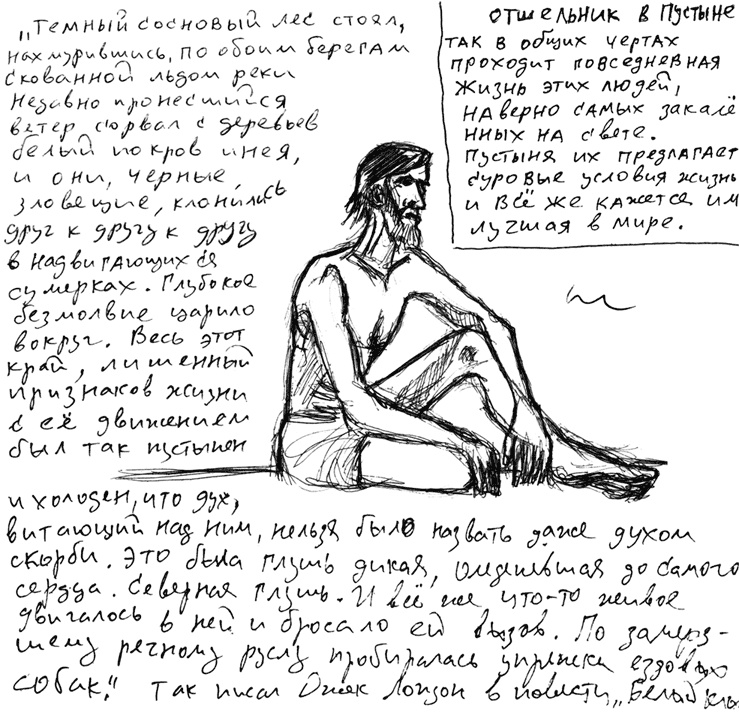 „Темный сосновый лес стоял,
нахмурившись, по обоим берегам
скованной льдом реки
Недавно пронесшийся
ветер сорвал с деревьев
белый покров инея,
и они, черные,
зловещие, клонились
друг к другу к другу
в надвигающихся
сумерках. Глубокое
безмолвие царило
вокруг. Весь этот
край, лишенный
признаков жизни
с её движением
был так пустынен
и холоден, что дух,
витающий над ним, нельзя было назвать даже духом
скорби. Это была глушь дикая, оледеневшая до самого
сердца. Северная глушь. И всё же что-то живое
двигалось в ней и бросало ей вызов. По замерз-
шему речному руслу пробиралась упряжка ездовых
собак." Так писал Джек Лондон в повести „Белый
отшельник в пустыне
так в общих чертах
проходит повседневная
жизнь этих людей,
наверно самых закалё
нных на свете.
Пустыня их предлагает
суровые условия жизнь
и всё же кажется им
лучшая в мире.